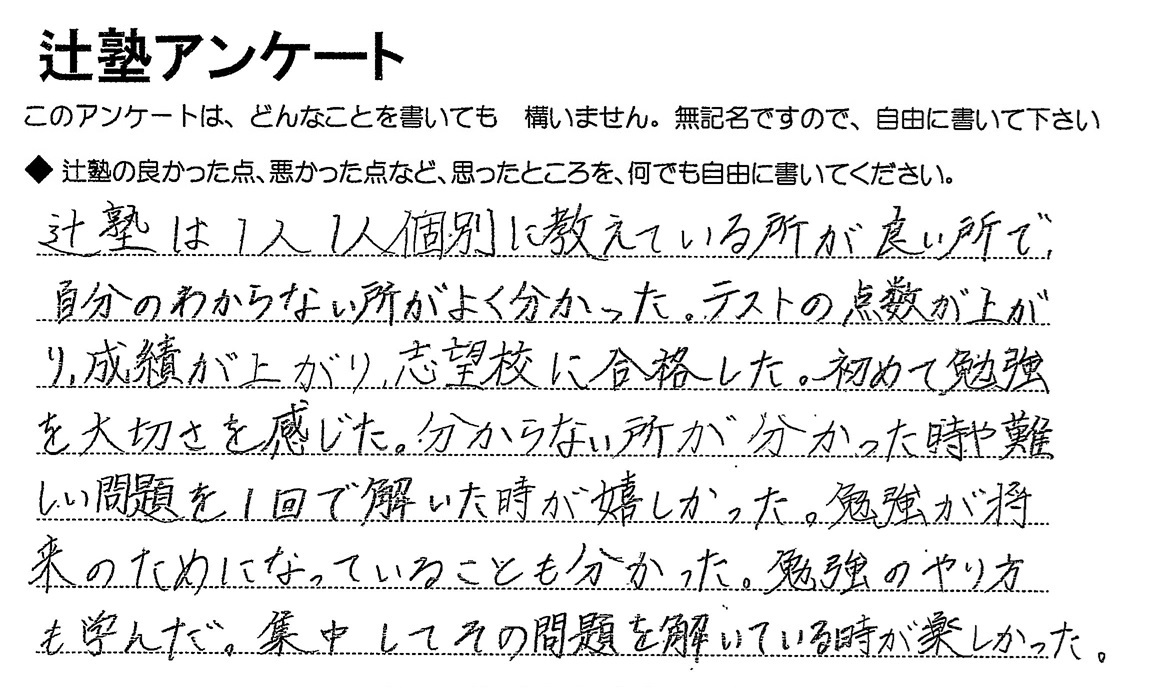 辻塾アンケート
このアンケートは、どんなことを書いても 構いません。無記名ですので、自由に書いて下さい
◆ 辻塾の良かった点、悪かった点など、思ったところを、何でも自由に書いてください。
辻塾は1人1人個別に教えている所が良い所で、
自分のわからない所がよく分かった。テストの点数が上が
り、成績が上がり、志望校に合格した。初めて勉強
を大切さを感じた。分からない所が分かった時や難
しい問題を1回で解いた時が嬉しかった。勉強が将
来のためになっていることも分かった。勉強のやり方
も学んだ。集中してその問題を解いている時が楽しかった。